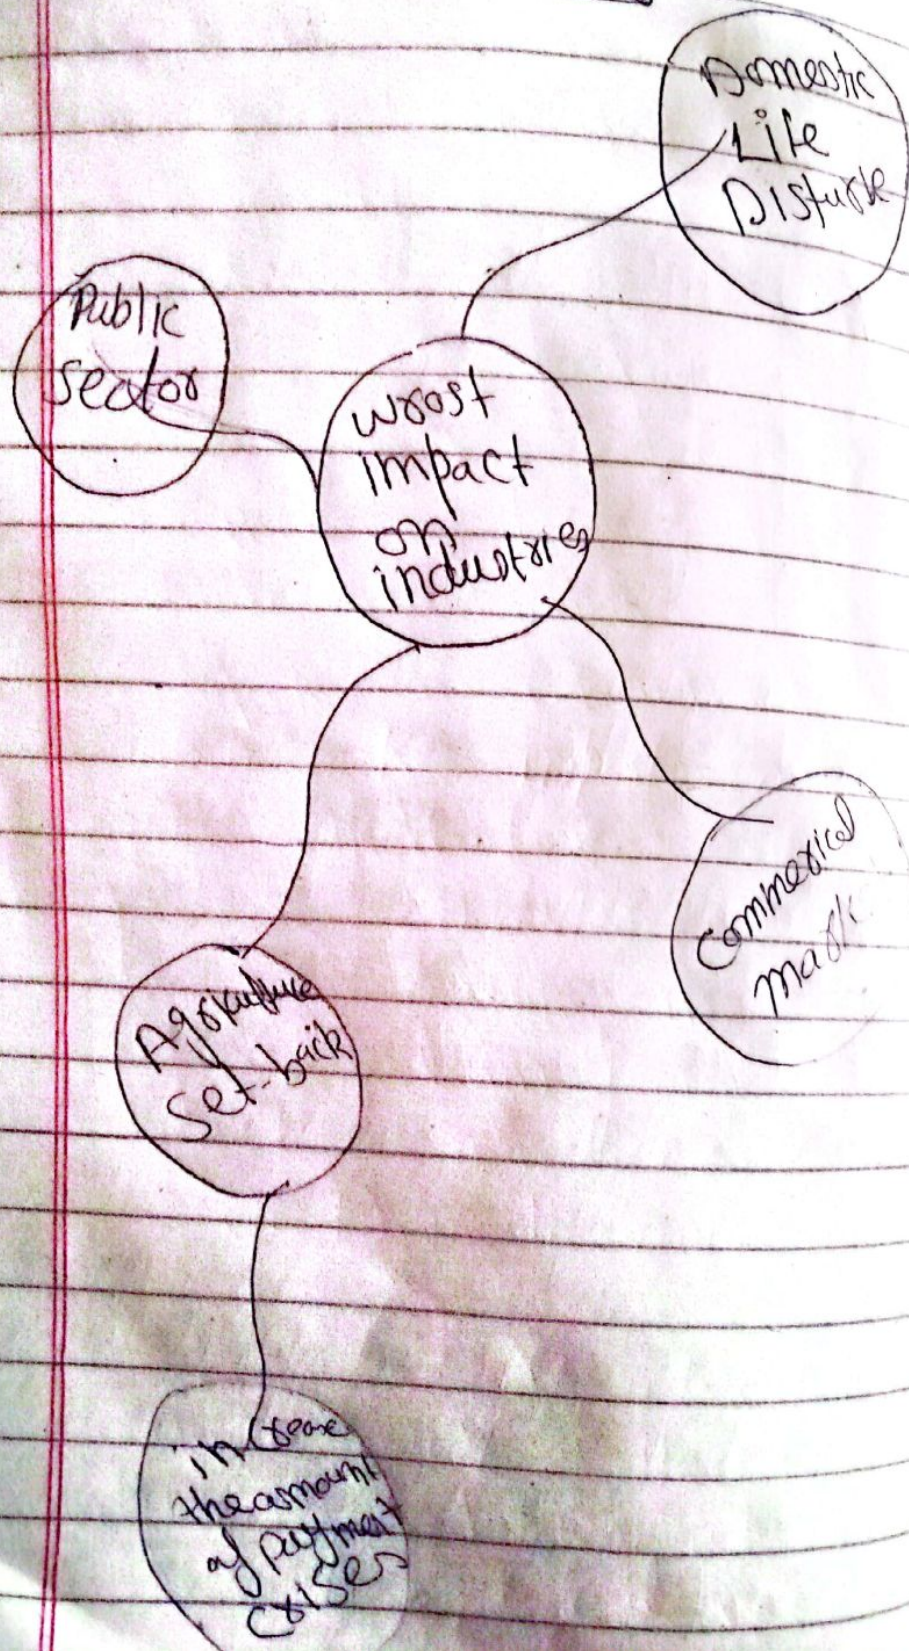 Domestic
Life
Disturb
Public
Sector
wrost
impact
on
industries
Commerical
Mark
Agriculture
Set-back
increase
the amount
of payment
crises